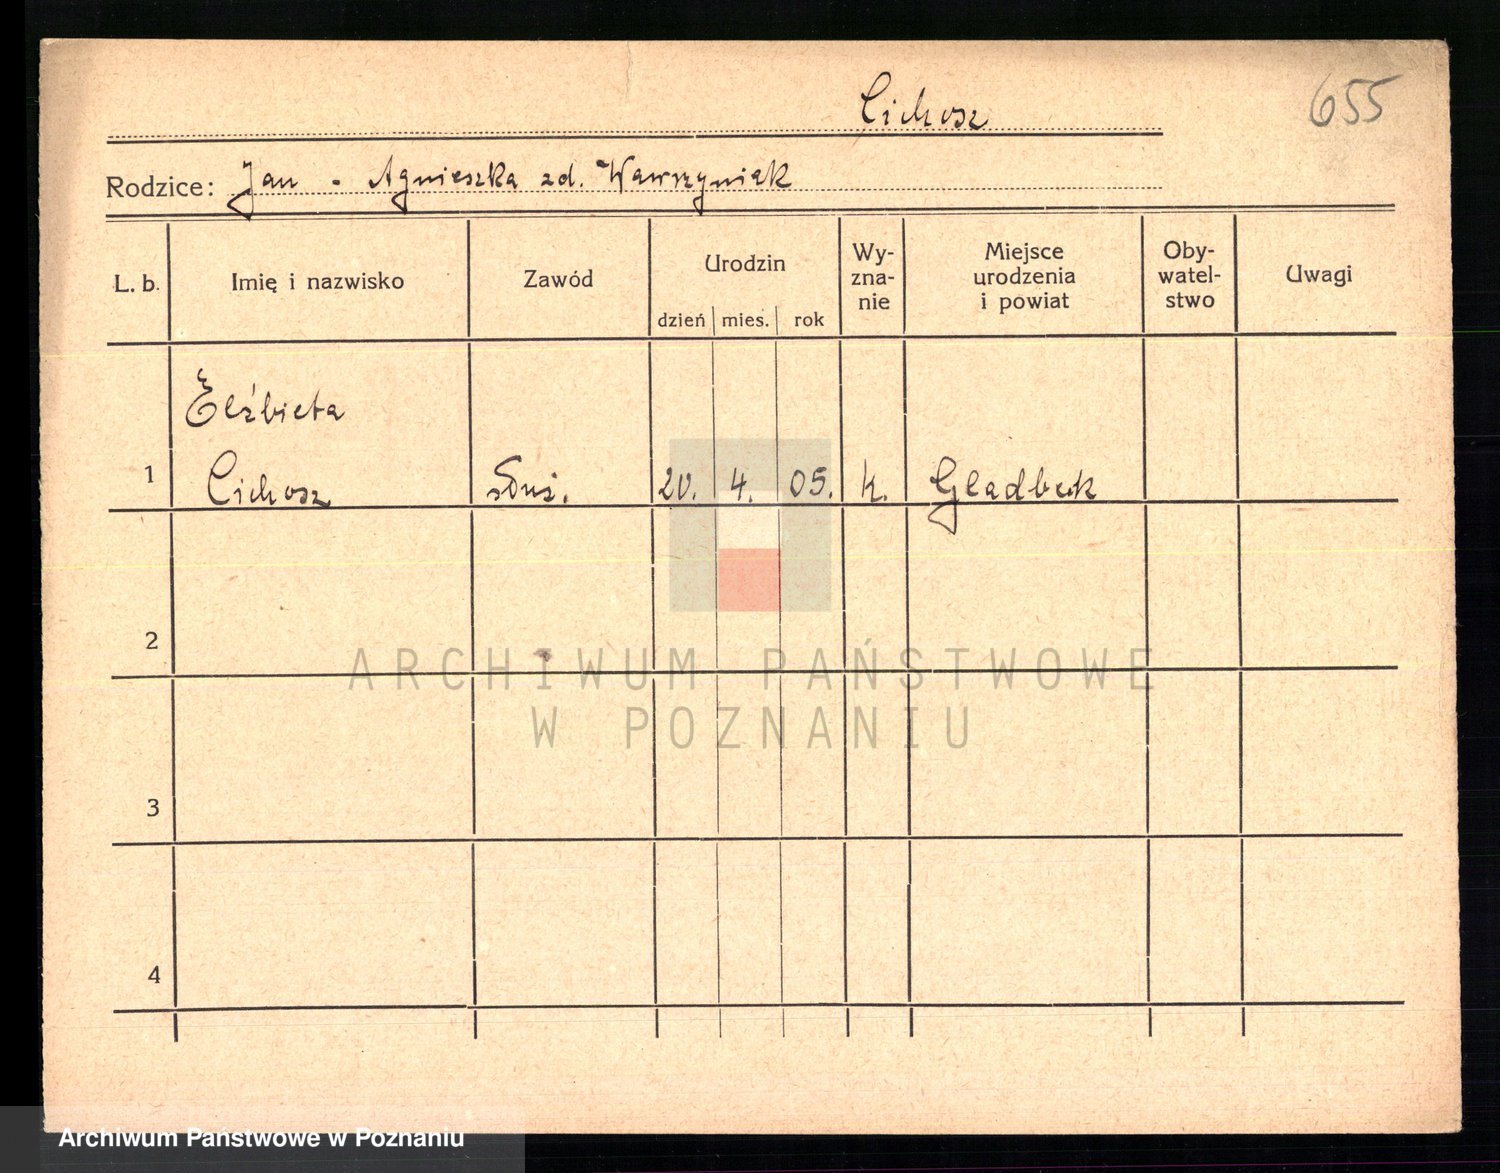 Cichosz
655
Rodzice: Jan - Agnieszka zd. Wawrzyniak
L. b.
Imię i nazwisko
Zawód
Urodzin
dzień
mies.
rok
Wy-
zna-
nie
Miejsce
urodzenia
i powiat
Oby-
watel-
stwo
Uwagi
Elżbieta
1 Cichosz służ. 20. 4. 05. k. Gladbeck
2
3
4
ARCHIWUM PAŃSTWOWE
W POZNANIU
Archiwum Państwowe w Poznaniu